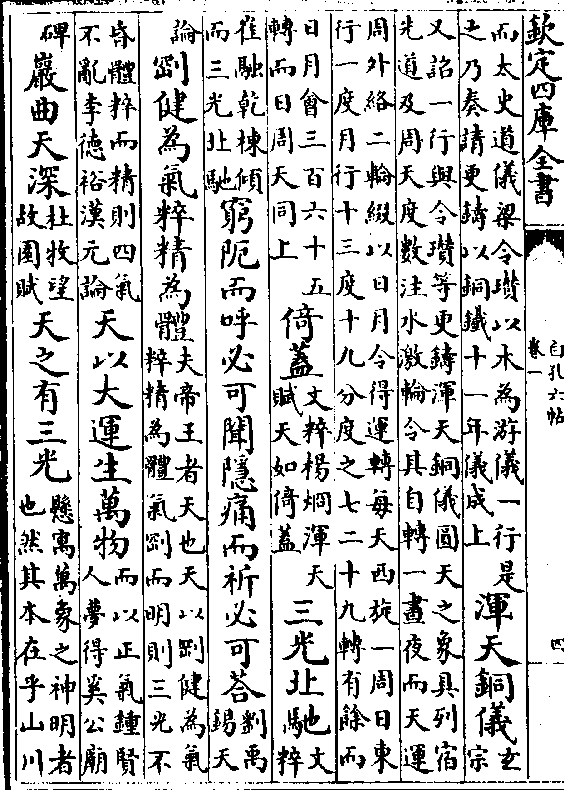 欽定四庫全書
白孔六帖
卷一
四
而太史道儀梁令瓚以木為游儀一行是
之乃奏請更鑄以銅鐵十一年儀成上
渾天銅儀
玄
宗
又詔一行與令瓚等更鑄渾天銅儀圓天之象具列宿
先道及周天度數注水激輪令其自轉一晝夜而天運
周外絡二輪綴以日月令得運轉每天西旋一周日東
行一度月行十三度十九分度之七二十九轉有餘而
日月會三百六十五
轉而日周天同上
倚蓋
文粹楊炯渾天
賦天如倚蓋
三光北馳
文
粹
崔融乾棟傾
而三光北馳
窮阨而呼必可聞隱痛而祈必可荅
劉禹
錫天
論
剛健為氣粹精為體
夫帝王者天也天以剛健為氣
粹精為體氣剛而明則三光不
昏體粹而精則四氣
不亂李德裕漢元論
天以大運生萬物
而以正氣鍾賢
人夢得奚公廟
碑
巖曲天深
杜牧望
故園賦
天之有三光
懸寓萬象之神明者
也然其本在乎山川